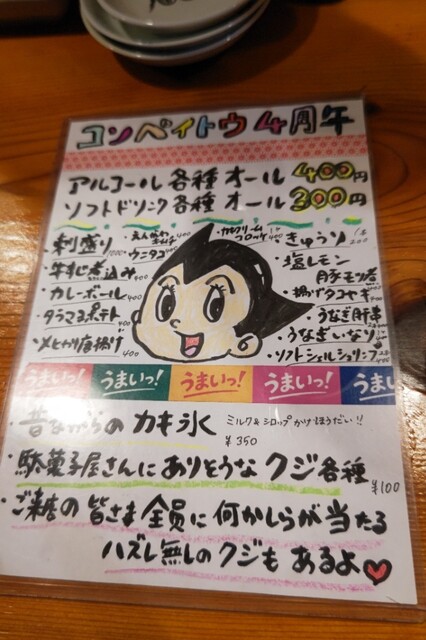 コンペイトウ4周年
アルコール各種オール400円
ソフトドリンク各種オール200円
・刺盛り 1000
・えんがわキムチ 400
・カニクリームコロッケ
・きゅうり 200
・牛すじ煮込み 400
・ウニタコ 400
・塩レモン豚モツ煮
・カレーボール 400
・揚げタコヤキ
・タラマヨポテト
・うなぎ肝串
・うなぎいなり
・メヒカリ唐揚げ 400
・ソフトシェルシュリンプ
うまいっ! うまいっ! うまいっ! うまいっ! うまいっ
・昔ながらのカキ氷 ミルク&シロップかけほうだい!!
¥350
・駄菓子屋さんにありそうなクジ各種 ¥100
・ご来店の皆さま全員に何かしらが当たる
ハズレ無しのクジもあるよ♥